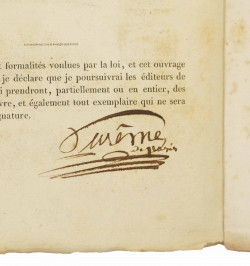 t formalités voulues par la loi, et cet ouvrage
je déclare que je poursuivrai les éditeurs de
i prendront, partiellement ou en entier, des
vre, et également tout exemplaire qui ne sera
gnature.
Carême
de Paris